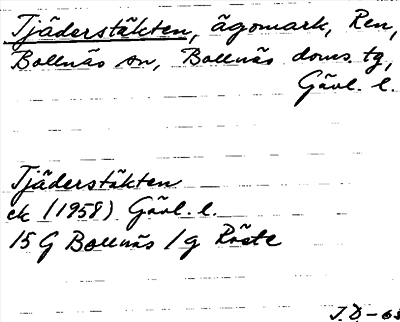 Tjäderstäkten, ägomark, Ren,
Bollnäs sn, Bollnäs doms. tg,
Gävl. l.
Tjäderstäkten
ek (1958) Gävl. l.
15 G Bollnäs 1g Röste
J.D-68